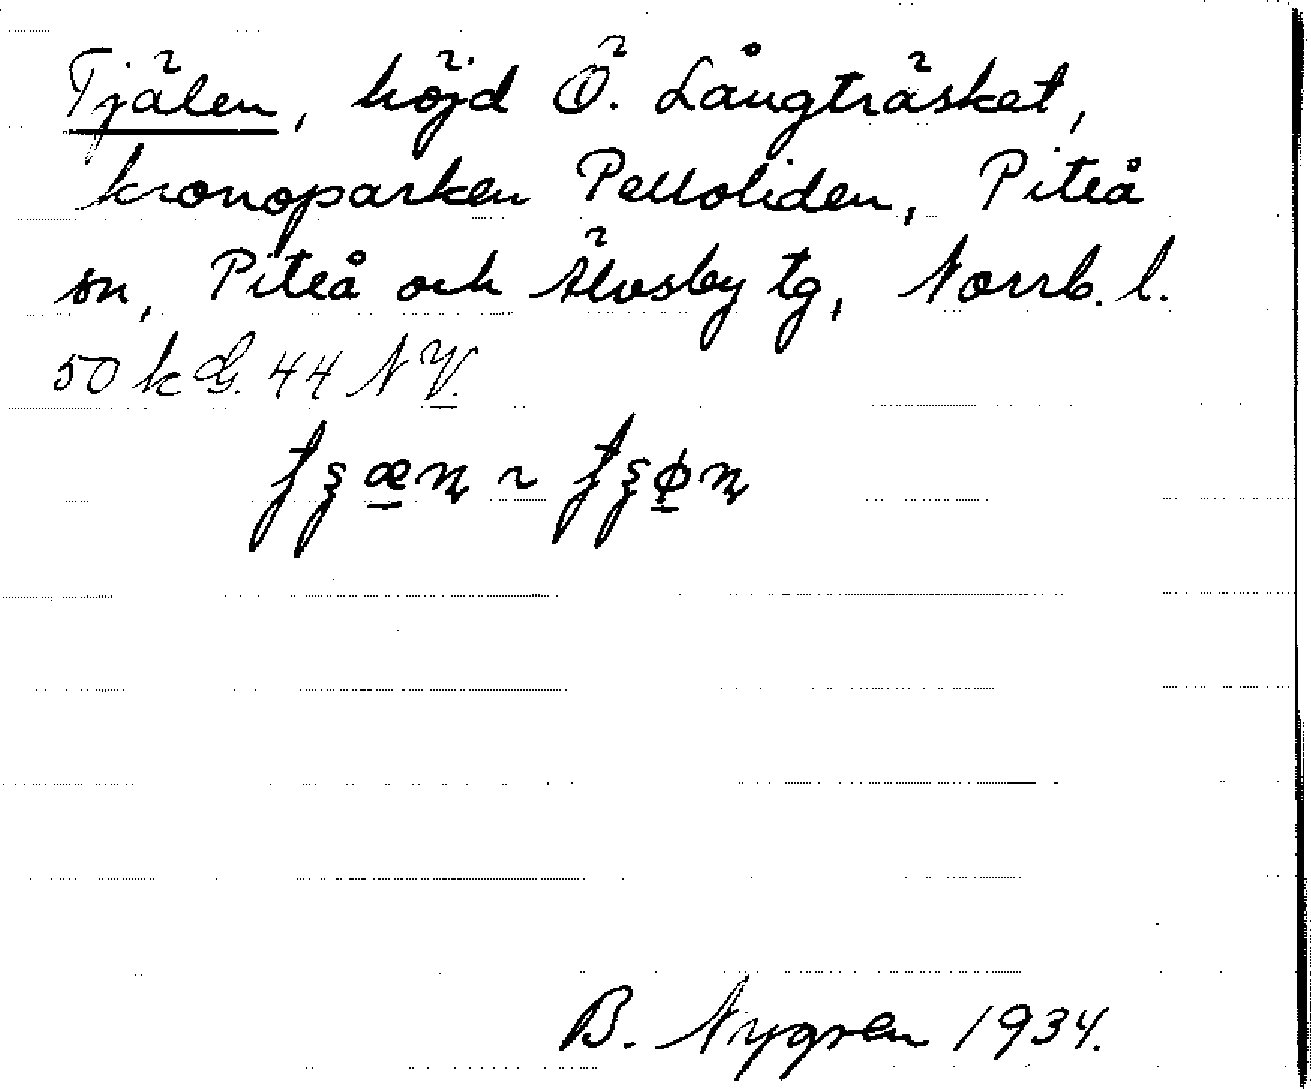 Tjälen, höjd Ö. Långträsket,
kronoparken Pelloliden, Piteå
sn, Piteå och Älvsby tg, Norrb. l.
50 k G. 44 N V.
B. Nygren 1934.